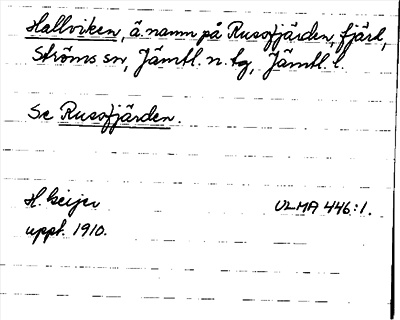 Hallviken, ä. namn på Rusofjärden, fjärd,
Ströms sn, Jämtl. n. tg, Jämtl. l.
Se Rusofjärden.
H. Geijer ULMA 446:1.
uppt. 1910.